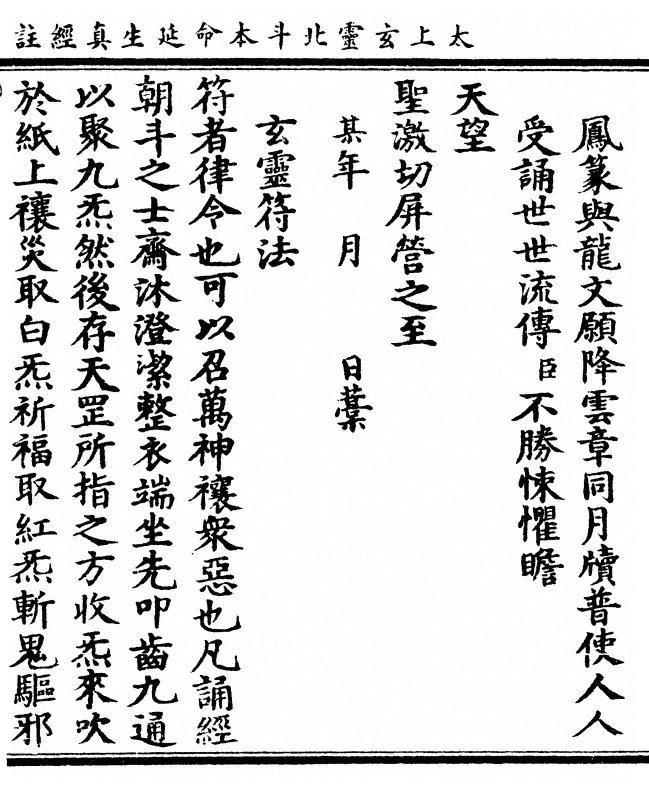 太上玄靈北斗本命延生真經註
鳳篆與龍文願降雲章同月牘普使人人
受誦世世流傳臣不勝悚懼瞻
天望
聖激切屏營之至
某年 月 日藁
玄靈符法
符者律令也可以召萬神禳衆惡也凡誦經
朝斗之士齋沐澄潔整衣端坐先叩齒九通
以聚九炁然後存天罡所指之方收炁來吹
於紙上禳災取白炁祈福取紅炁斬鬼驅邪